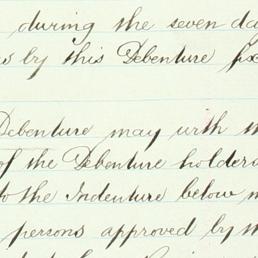 during the seven da
s by this Debenture fix
Debenture may with th
of the Debenture holders
to the Indenture below m
persons approved by th